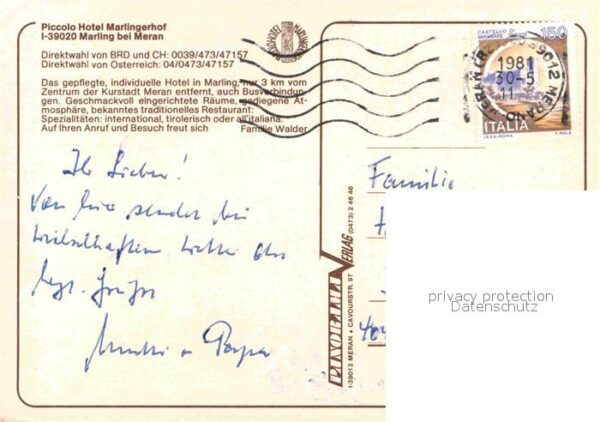 Piccolo Hotel Marlingerhof
I-39020 Marling bei Meran
Direktwahl von BRD und CH: 0039/473/47157
Direktwahl von Österreich: 04/0473/47157
Das gepflegte, individuelle Hotel in Marling, nur 3 km vom
Zentrum der Kurstadt Meran entfernt, auch Busverbindun-
gen. Geschmackvoll eingerichtete Räume, gediegene At-
mosphäre, bekanntes traditionelles Restaurant:
Spezialitäten: international, tirolerisch oder all'italiana.
Auf Ihren Anruf und Besuch freut sich Familie Walder
Ihr Lieben!
Von hier sendet bei
Wetter die
Grüße
Mutti u Papa
PANORAMA VERLAG (0473) 2 46 46
I-39012 MERAN • CAVOURSTR. 97
CASTELLO DI
MIRAMARE
150
39012 MERANO
1981
30-5
11
ITALIA
I.P.Z.S. ROMA
Familie
privacy protection
Datenschutz